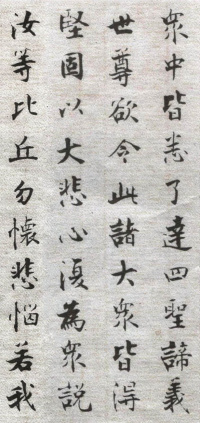 眾中皆悉了達四聖諦義
世尊欲令此諸大眾皆得
堅固以大悲心復為眾說
汝等比丘勿懷悲惱若我